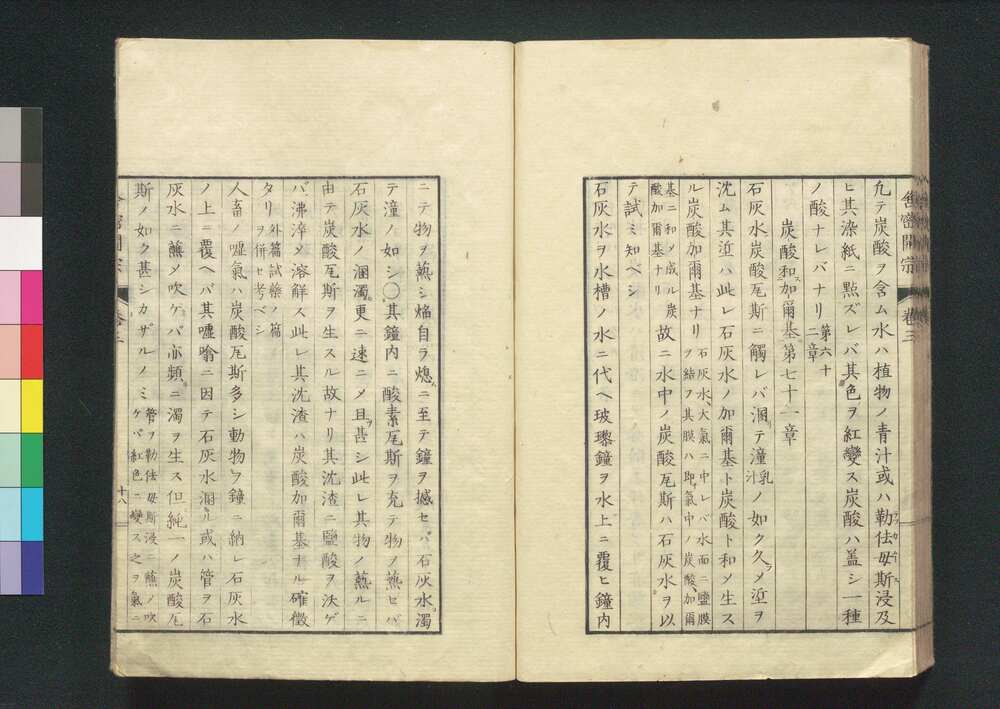 舎密開宗 巻三
凢テ炭酸ヲ含ム水ハ植物ノ青汁或ハ勒佉母斯浸及
ヒ其染紙ニ㸃ズレバ其色ヲ紅變ス炭酸ハ蓋シ一種
ノ酸ナレバナリ 第六十二章
炭酸和加爾基第七十一章
石灰水炭酸瓦斯ニ觸レバ溷リテ潼乳汁ノ如ク久フメ泟ヲ
沈ム其泟ハ此レ石灰水ノ加爾基ト炭酸ト和メ生ス
ル炭酸加爾基ナリ 石灰水、大氣ニ中レバ水面ニ鹽膜ヲ結フ其膜ハ即氣中ノ炭酸、加爾
基ニ和メ成ル炭酸加爾基ナリ 故ニ水中ノ炭酸瓦斯ハ石灰水ヲ以
テ試ミ知ベシ
石灰水ヲ水槽ノ水ニ代ヘ玻瓈鐘ヲ水上ニ覆ヒ鐘内
ニテ物ヲ爇シ焔自ラ熄ムニ至テ鐘ヲ撼セバ石灰水濁リ
テ潼ノ如シ〇其鐘内ニ酸素瓦斯ヲ充テ物ヲ爇セバ
石灰水ノ溷濁更ニ速ニメ且ヲ甚シ此レ其物ノ爇ルニ
由テ炭酸瓦斯ヲ生スル故ナリ其沈渣ニ鹽酸ヲ沃ゲ
バ沸淬メ溶解ス此レ其沈渣ハ炭酸加爾基ナル確徴
タリ 外篇試藥ノ篇ヲ併セ考ベシ
人畜ノ嘘氣ハ炭酸瓦斯多シ動物ヲ鐘ニ納レ石灰水
ノ上ニ覆ヘバ其嘘噏ニ因テ石灰水溷ル或ハ管ヲ石
灰水ニ蘸メ吹ケバ亦類ニ濁ヲ生ス但純一ノ炭酸瓦
斯ノ如ク甚シカザルノミ 管ヲ勒佉母斯浸ニ蘸メ吹ケバ紅色ニ變ス之ヲ氣ニ
十八